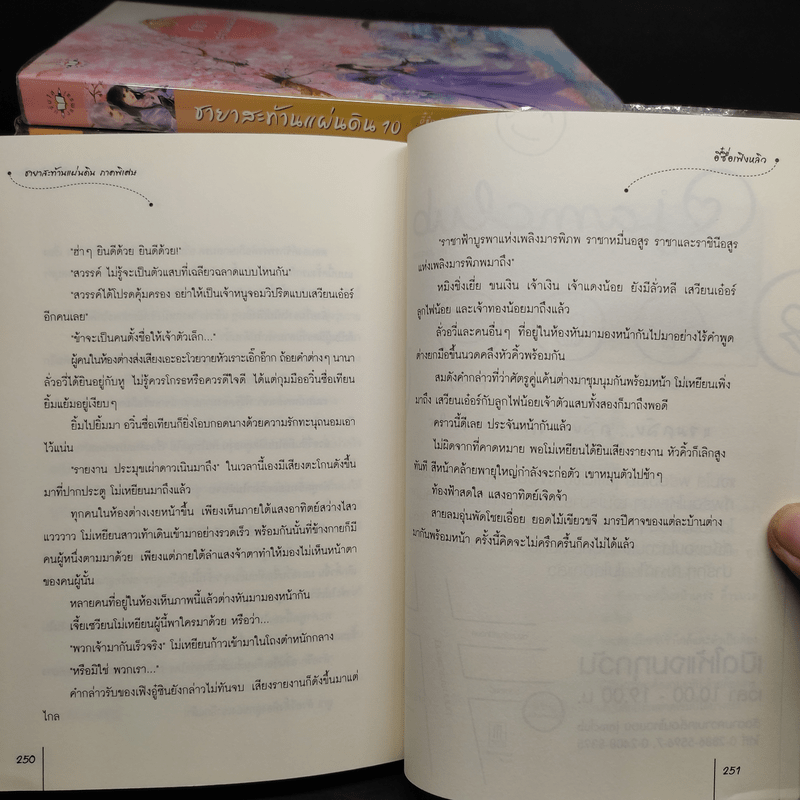 ชายาสะท้านแผ่นดิน 10
ชายาสะท้านแผ่นดิน ภาคพิเศษ
"ฮ่าๆ ยินดีด้วย ยินดีด้วย!"
"สวรรค์ ไม่รู้จะเป็นตัวแสบที่เฉลียวฉลาดแบบไหนกัน"
"สวรรค์ได้โปรดคุ้มครอง อย่าให้เป็นเจ้าหนูจอมวิปริตแบบเสวียนเอ๋อร์
อีกคนเลย"
"ข้าจะเป็นคนตั้งชื่อให้เจ้าตัวเล็ก..."
ผู้คนในห้องต่างส่งเสียงเอะอะโวยวายหัวเราะเอิ๊กอ๊าก ถ้อยคำต่างๆ นานา
ลั่วอวี่ได้ยินอยู่กับหู ไม่รู้ควรโกรธหรือควรดีใจดี ได้แต่กุมมืออวิ๋นซื่อเทียน
ยิ้มแย้มอยู่เงียบๆ
ยิ้มไปยิ้มมา อวิ๋นซื่อเทียนก็ยิ่งโอบกอดนางด้วยความรักทะนุถนอมเอา
ไว้แน่น
"รายงาน ประมุขเผ่าดาวเนินมาถึง" ในเวลานี้เองมีเสียงตะโกนดังขึ้น
มาที่ปากประตู โม่เหยียนมาถึงแล้ว
ทุกคนในห้องต่างเงยหน้าขึ้น เพียงเห็นภายใต้แสงอาทิตย์สว่างไสว
แวววาว โม่เหยียนสาวเท้าเดินเข้ามาอย่างรวดเร็ว พร้อมกันนั้นที่ข้างกายก็มี
คนผู้หนึ่งตามมาด้วย เพียงแต่ภายใต้ลำแสงจ้าตาทำให้มองไม่เห็นหน้าตา
ของคนผู้นั้น
หลายคนที่อยู่ในห้องเห็นภาพนี้แล้วต่างหันมามองหน้ากัน
เจี้ยเซวียนโม่เหยียนผู้นี้พาใครมาด้วย หรือว่า...
"พวกเจ้ามากันเร็วจริง" โม่เหยียนก้าวเข้ามาในโถงตำหนักกลาง
"หรือมิใช่ พวกเรา..."
คำกล่าวรับของเฟิงอู๋ซินยังกล่าวไม่ทันจบ เสียงรายงานก็ดังขึ้นมาแต่
ไกล
250
อี้ซื่อเฟิงหลิว
"ราชาฟ้าบูรพาแห่งเพลิงมารพิภพ ราชาหมื่นอสูร ราชาและราชินีอสูร
แห่งเพลิงมารพิภพมาถึง"
หมิงชิงเยี่ย ขนเงิน เจ้าเงิน เจ้าแดงน้อย ยังมีลั่วหลี เสวียนเอ๋อร์
ลูกไฟน้อย และเจ้าทองน้อยมาถึงแล้ว
ลั่วอวี่และคนอื่นๆ ที่อยู่ในห้องหันมามองหน้ากันไปมาอย่างไร้คำพูด
ต่างยกมือขึ้นนวดคลึงหัวคิ้วพร้อมกัน
สมดังคำกล่าวที่ว่าศัตรูคู่แค้นต่างมาชุมนุมกันพร้อมหน้า โม่เหยียนเพิ่ง
มาถึง เสวียนเอ๋อร์กับลูกไฟน้อยเจ้าตัวแสบทั้งสองก็มาถึงพอดี
คราวนี้ดีเลย ประจันหน้ากันแล้ว
ไม่ผิดจากที่คาดหมาย พอโม่เหยียนได้ยินเสียงรายงาน หัวคิ้วก็เลิกสูง
ทันที สีหน้าคล้ายพายุใหญ่กำลังจะก่อตัว เขาหมุนตัวไปช้าๆ
ท้องฟ้าสดใส แสงอาทิตย์เจิดจ้า
สายลมอุ่นพัดโชยเอื่อย ยอดไม้เขียวขจี มารปีศาจของแต่ละบ้านต่าง
มากันพร้อมหน้า ครั้งนี้คิดจะไม่ครึกครื้นก็คงไม่ได้แล้ว
251